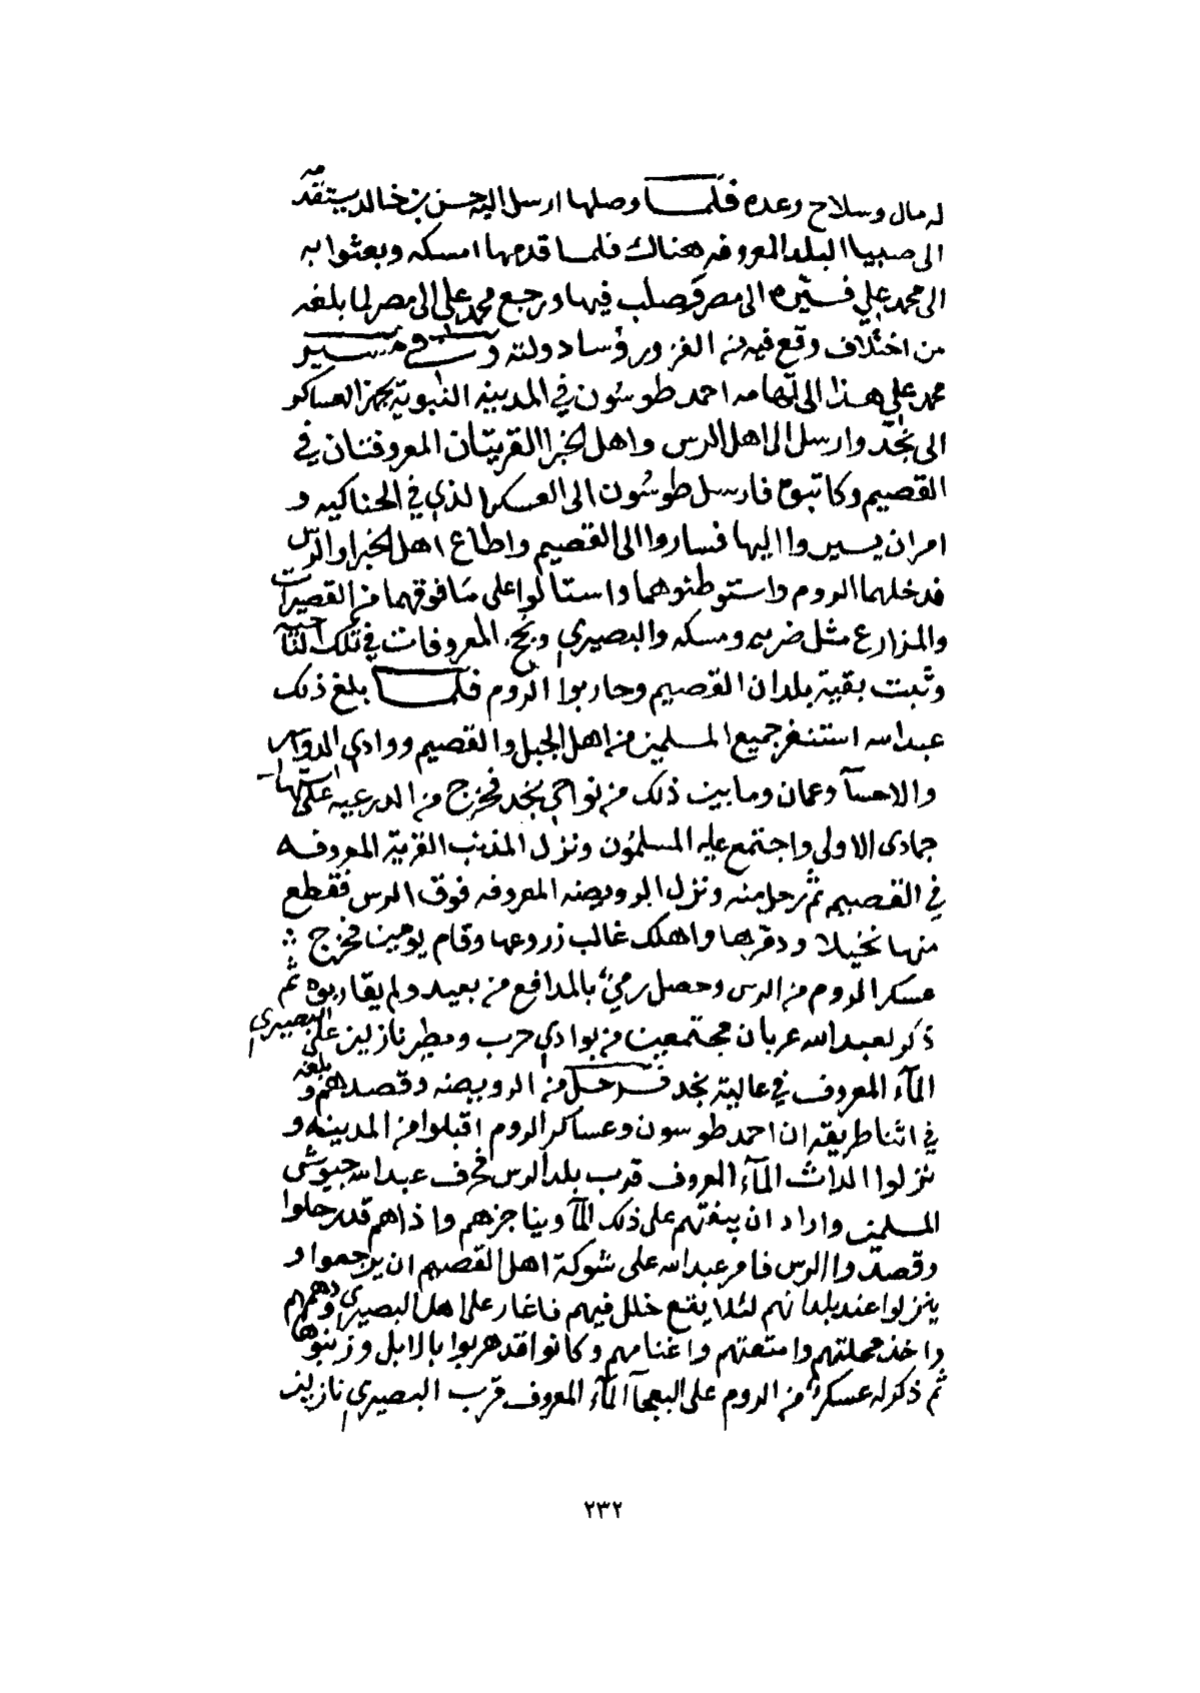 له مال وسلاح وعده فلما وصلها ارسل اليه حسن بن خالد يستقدمه
الى صبيا البلد المعروفه هناك فلما قدمها امسكه وبعثوا به
الى محمد علي فسيّره الى مصر وصلب فيها ورجع محمد علي الى مصر لما بلغه
من اختلاف وقع فيه من الغز ورؤسا دولته وفي مسير
محمد علي هذا الى تهامه احمد طوسون في المدينه النبوية يجهز العساكر
الى نجد وارسل الى اهل الرس واهل الخبرا القريتان المعروفتان في
القصيم وكاتبوه فارسل طوسُون الى العسكر الذي في الحناكيه و
امر ان يسيروا اليها فساروا الى القصيم واطاع اهل الخبرا والرس
فدخلهما الروم واستوطنوهما واستالوا على مافوقهما من القصيرات
والمزارع مثل ضريه ومسكه والبصيري ونجخ المعروفات في تلك الناحيه
وثبت بقية بلدان القصيم وحاربوا الروم فلما بلغ ذلك
عبدالله استنفر جميع المسلمين من اهل الجبل والقصيم ووادي الدواسر
والاحسآ وعمان ومابين ذلك من نواحي نجد فخرج من الدرعيه
جمادى الاولى واجتمع عليه المسلمُون ونزل المذنب القرية المعروفه
في القصيم ثم رحل منه ونزل الرويضه المعروفه فوق الرس فقطع
منها نخيلا ودمّرها واهلك غالب زروعها وقام يومين فخرج
عسكر الروم من الرس وحصل رميٌ بالمدافع من بعيد ولم يقاربوه ثم
ذكر لعبدالله عربان مجتمعين من بوادي حرب ومطير نازلين على البصيري
المآء المعروف في عالية نجد فرحل من الرويضه وقصدهم وبلغه
في اثنا طريقه ان احمد طوسون وعساكر الروم اقبلوا من المدينه و
نزلوا الداث المآء المعروف قرب بلد الرس فحرف عبدالله جيوش
المسلمين واراد ان يبغتهم على ذلك المآ ويناجزهم واذاهم قد رحلوا
وقصدوا الرس فامر عبدالله على شوكة اهل القصيم ان يرجعوا و
ينزلوا عند بلدانهم لئلا يقع خلل فيهم فاغار على اهل البصيري ودهمهم
واخذ محلتهم وامتعتهم واغنامهم وكانوا قد هربوا بالابل وزبنوها
ثم ذكر له عسكرٌ من الروم على البعجآ المآء المعروف قرب البصيري نازلين
٢٣٢